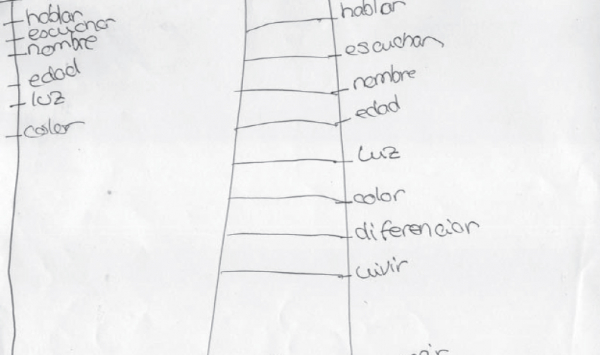 hablar
escuchar
nombre
edad
luz
color
hablar
escuchar
nombre
edad
Luz
color
diferenciar
vivir